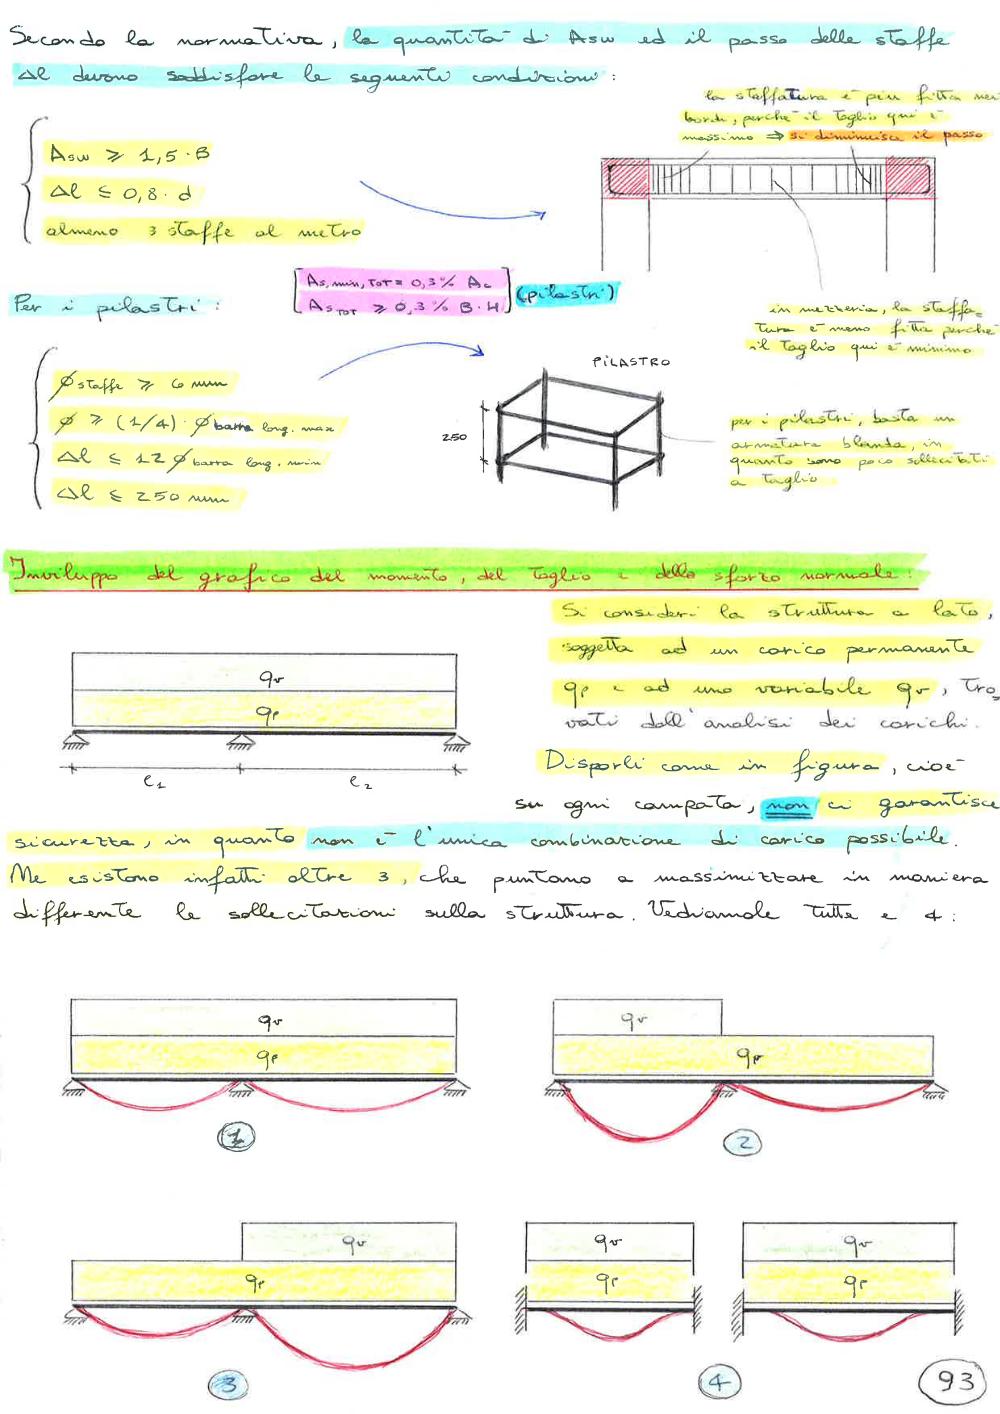 Secondo la normativa, la quantità di Asw ed il passo delle staffe
Δl devono soddisfare le seguenti condizioni:
la staffatura è più fitta nei
bordi, perché il taglio qui è
massimo ⇒ si diminuisce il passo
Asw ⩾ 1,5·B
Δl ⩽ 0,8·d
almeno 3 staffe al metro
in mezzeria, la staffa=
tura è meno fitta perché
il taglio qui è minimo
Per i pilastri:
As,min,TOT = 0,3% Ac
As TOT ⩾ 0,3% B·H
(pilastri)
Ø staffe ⩾ 6 mm
Ø ⩾ (1/4)·Ø barra long. max
Δl ⩽ 12 Ø barra long. min
Δl ⩽ 250 mm
PILASTRO
250
per i pilastri, basta un
armatura blanda, in
quanto sono poco sollecitati
a taglio
Inviluppo del grafico del momento, del taglio e dello sforzo normale:
Si consideri la struttura a lato,
soggetta ad un carico permanente
qp e ad uno variabile qv, tro=
vati dall'analisi dei carichi.
Disporli come in figura, cioè
su ogni campata, non ci garantisce
sicurezza, in quanto non è l'unica combinazione di carico possibile.
Ne esistono infatti altre 3, che puntano a massimizzare in maniera
differente le sollecitazioni sulla struttura. Vediamole tutte e 4:
qv
qp
l1 l2
qv
qp
1
qv
qp
2
qv
qp
3
qv qv
qp qp
4
93